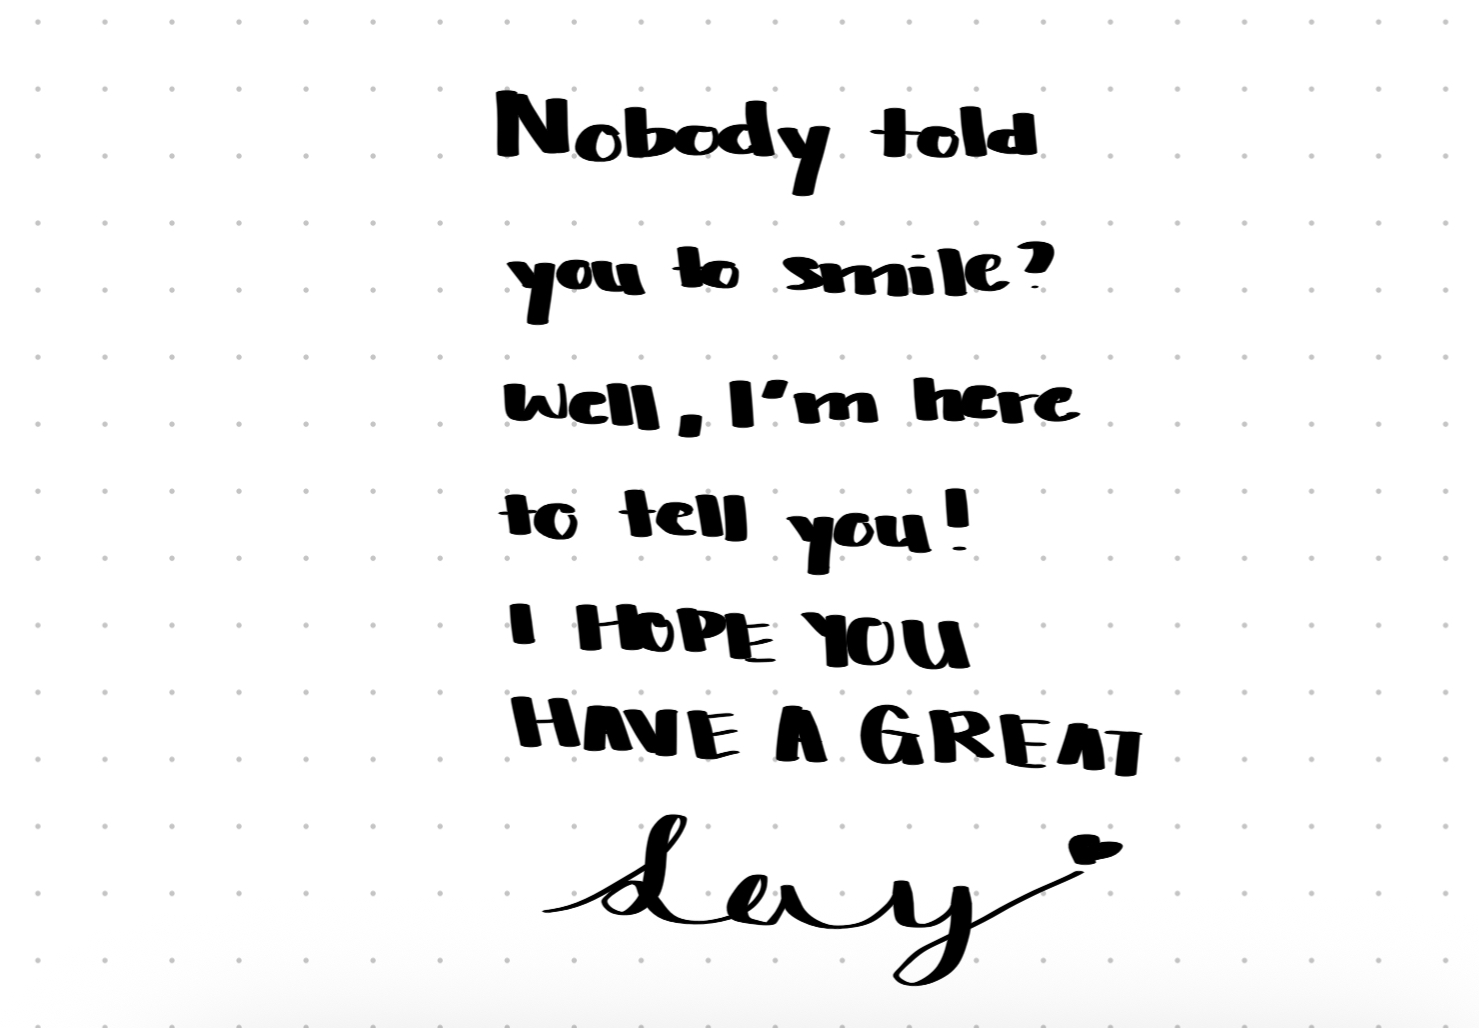 Nobody told
you to smile?
Well, I'm here
to tell you!
I HOPE YOU
HAVE A GREAT
day